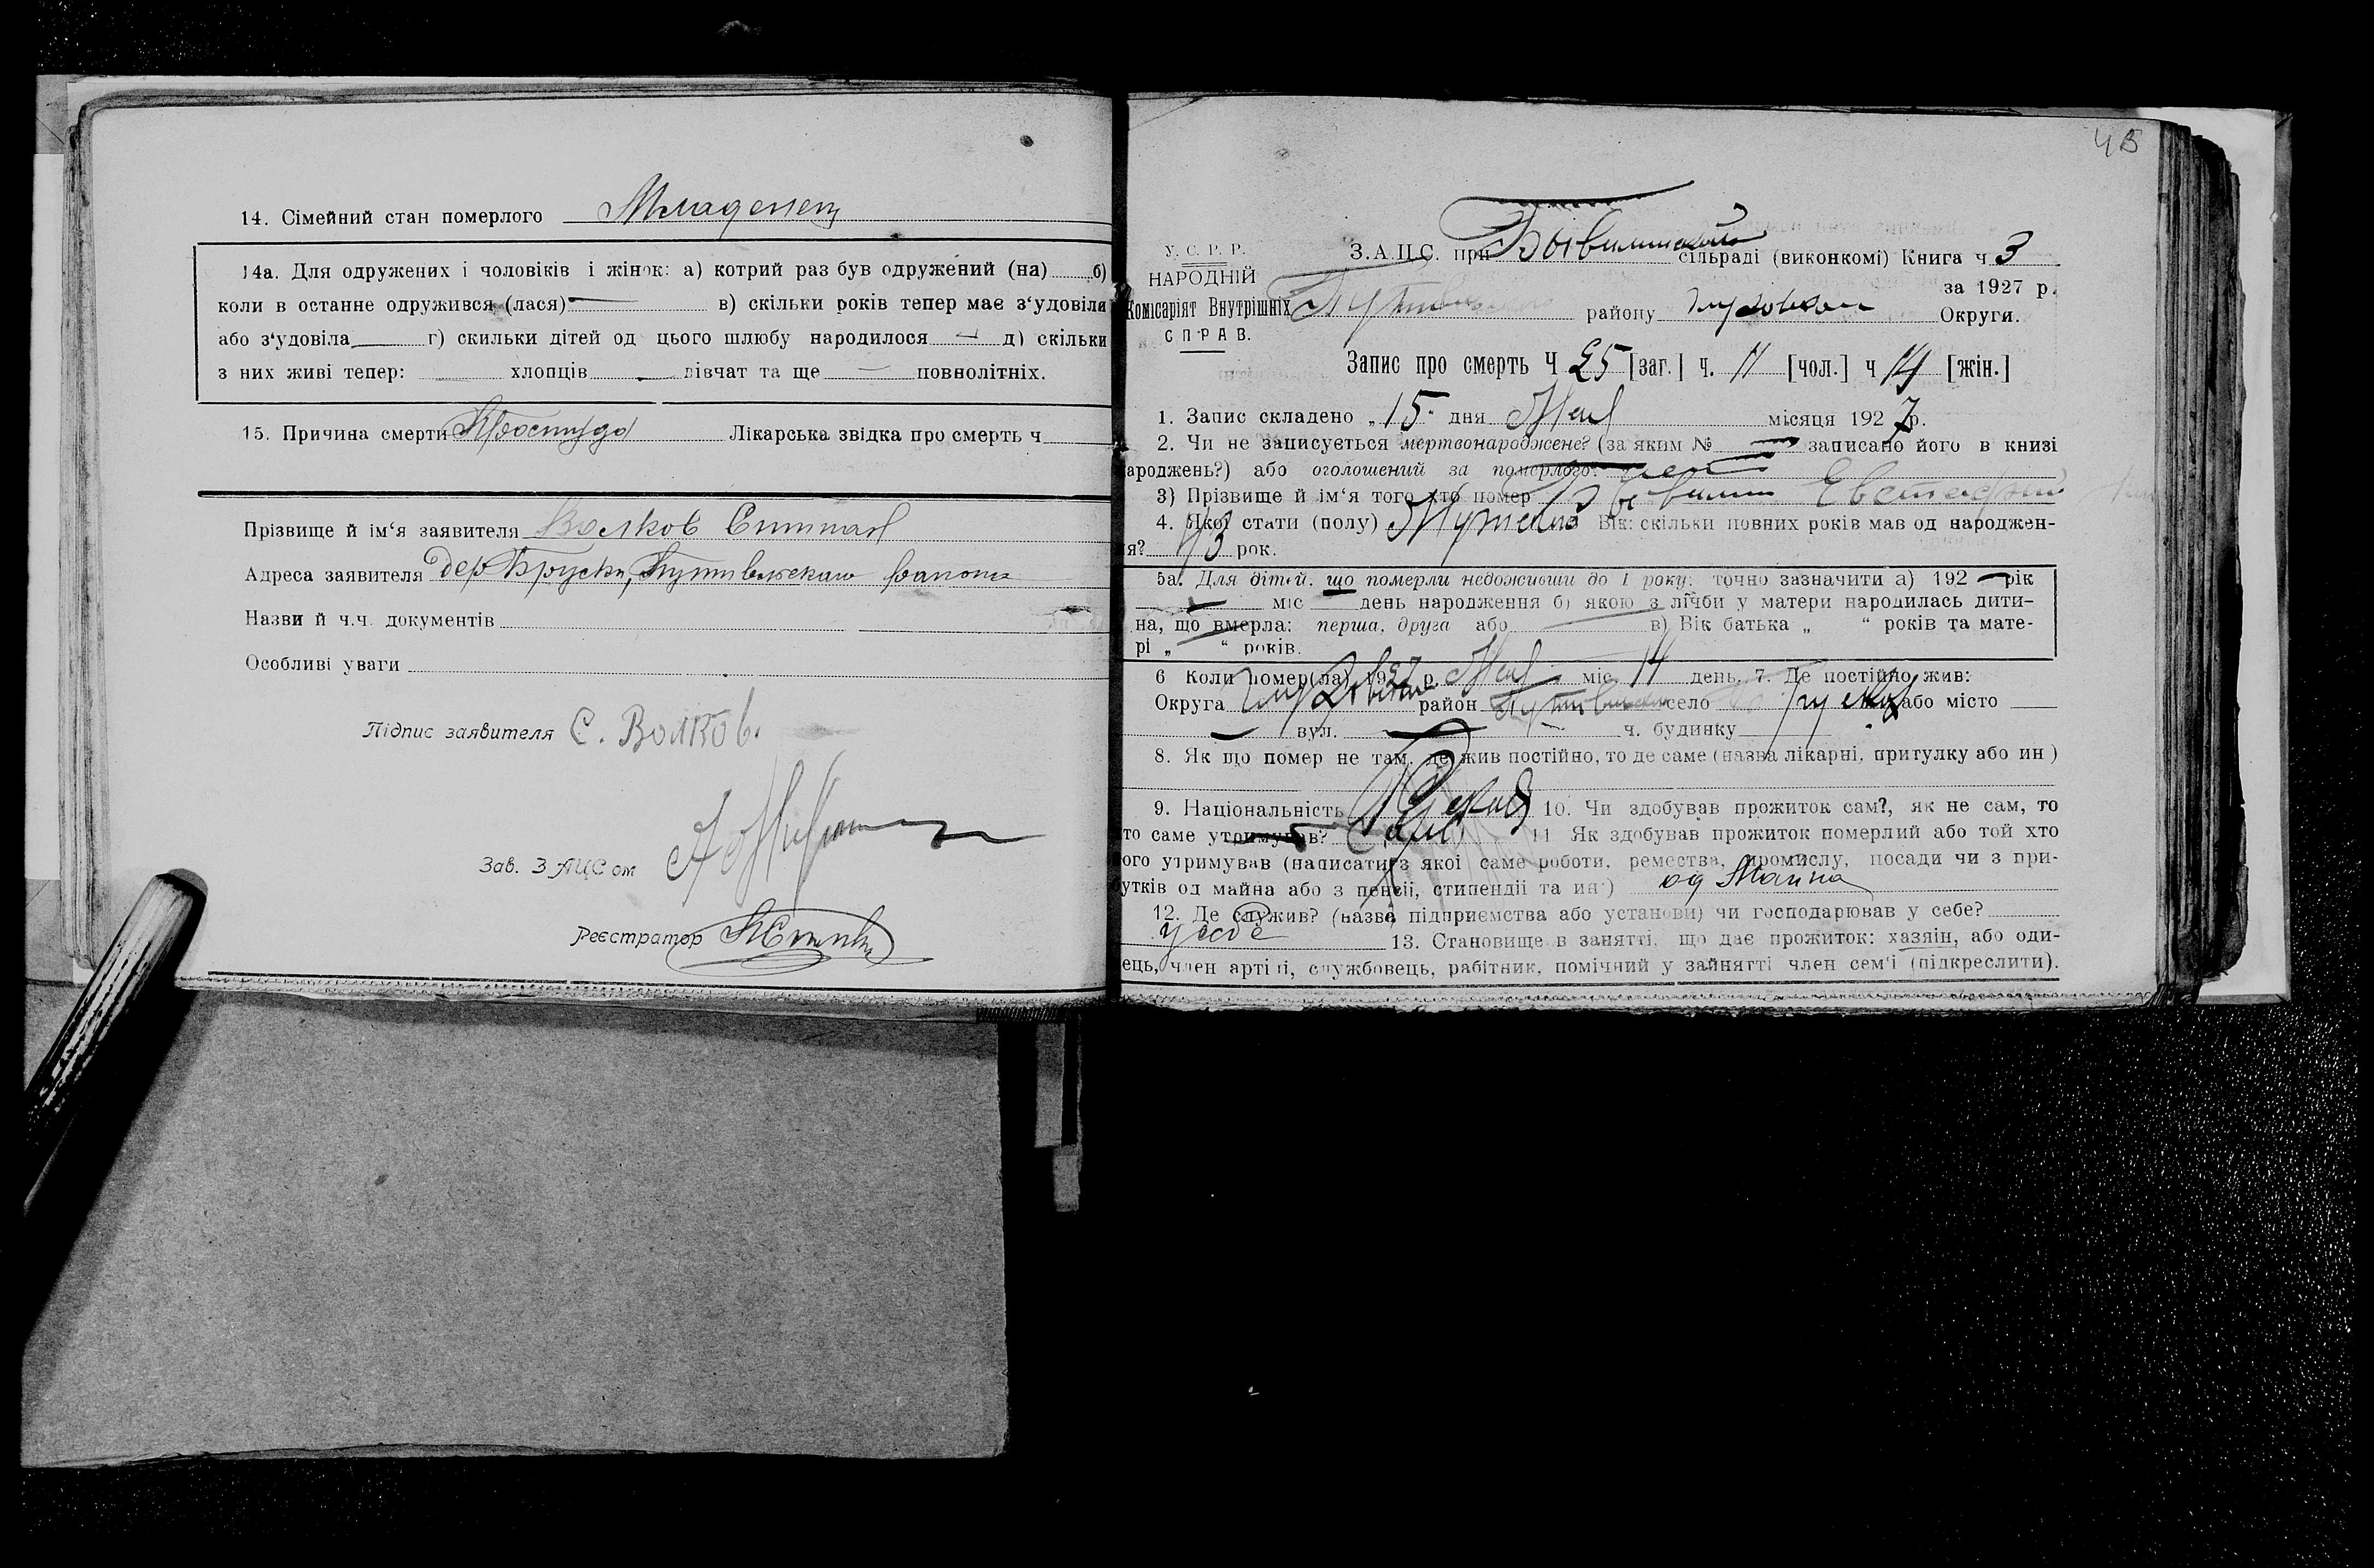 14. Сімейний стан померлого Младенец
14а. Для одружених і чоловіків і жінок: а) котрий раз був одружений (на) б)
коли в останне одружився (лася) — в) скільки років тепер має з‘удовіла
або з‘удовіла г) скильки дітей од цього шлюбу народилося — д) скільки
з них живі тепер: хлопців — дівчат та ще — повнолітніх.
15. Причина смерти Простуда Лікарська звідка про смерть ч
Прізвище й ім‘я заявителя Волков
Адреса заявителя дер Бруски, Путивльскаго района
Назви й ч.ч. документів
Особливі уваги
Підпис заявителя С. Волков.
Зав. ЗАЦСом
Реєстратор
43
У. С. Р. Р.
НАРОДНІЙ
Комісаріят Внутрішніх
СПРАВ.
З.А.Ц.С. при сільраді (виконкомі) Книга ч 3
за 1927 р.
району Округи.
Запис про смерть Ч 25 [заг.] ч. 11 [чол.] ч 14 [жін.]
1. Запис складено „15“ дня Мая місяця 1927 р.
2. Чи не записується мертвонароджене? (за яким № — записано його в книзі
ароджень?) або оголошений за померлого: нет
3) Прізвище й ім‘я того хто помер Евстафий
4. Якої стати (полу) Мужской Вік: скільки повних років мав од народжен-
я? 43 рок.
5а. Для дітей, що померли недоживши до 1 року: точно зазначити а) 192 — рік
— міс — день народження б) якою з лічби у матери народилась дити-
на, що вмерла: перша, друга або в) Вік батька „ “ років та мате-
рі „ “ років.
6 Коли помер(ла) 1927 р. Мая міс. 14 день. 7. Де постійно жив:
Округа район село або місто
— вул. — ч. будинку
8. Як що помер не там, де жив постійно, то де саме (назва лікарні, притулку або ин)
9. Національність 10. Чи здобував прожиток сам?, як не сам, то
то саме утримував? Сам 11 Як здобував прожиток померлий або той хто
ого утримував (написати з якої саме роботи, ремества, промислу, посади чи з при-
утків од майна або з пенсії, стипендії та ин.) од Майна
12. Де служив? (назва підприємства або установи) чи господарював у себе?
у себе 13. Становище в занятті, що дає прожиток: хазяін, або оди-
ець, член артілі, службовець, рабітник, помічний у зайнятті член сем‘і (підкреслити).